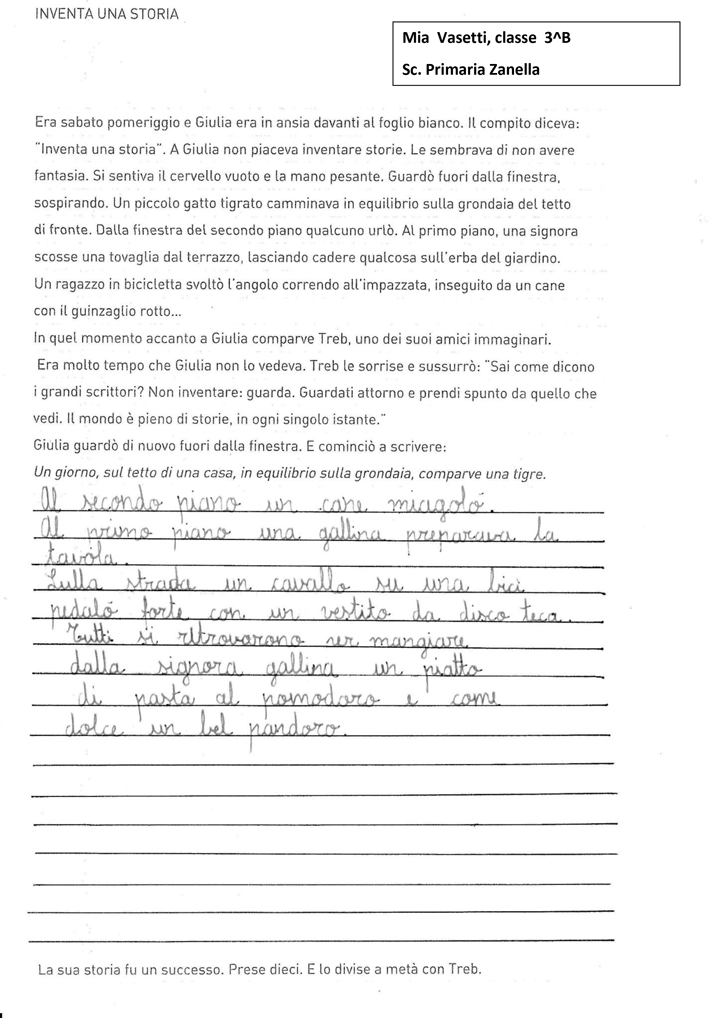 INVENTA UNA STORIA
Mia Vasetti, classe 3^B
Sc. Primaria Zanella
Era sabato pomeriggio e Giulia era in ansia davanti al foglio bianco. Il compito diceva:
"Inventa una storia". A Giulia non piaceva inventare storie. Le sembrava di non avere
fantasia. Si sentiva il cervello vuoto e la mano pesante. Guardò fuori dalla finestra,
sospirando. Un piccolo gatto tigrato camminava in equilibrio sulla grondaia del tetto
di fronte. Dalla finestra del secondo piano qualcuno urlò. Al primo piano, una signora
scosse una tovaglia dal terrazzo, lasciando cadere qualcosa sull'erba del giardino.
Un ragazzo in bicicletta svoltò l'angolo correndo all'impazzata, inseguito da un cane
con il guinzaglio rotto...
In quel momento accanto a Giulia comparve Treb, uno dei suoi amici immaginari.
Era molto tempo che Giulia non lo vedeva. Treb le sorrise e sussurrò: "Sai come dicono
i grandi scrittori? Non inventare: guarda. Guardati attorno e prendi spunto da quello che
vedi. Il mondo è pieno di storie, in ogni singolo istante."
Giulia guardò di nuovo fuori dalla finestra. E cominciò a scrivere:
Un giorno, sul tetto di una casa, in equilibrio sulla grondaia, comparve una tigre.
Al secondo piano un cane miagoló.
Al primo piano una gallina preparava la
tavola.
Sulla strada un cavallo su una bici
pedaló forte con un vestito da disco teca.
Tutti si ritrovarono per mangiare
dalla signora gallina un piatto
di pasta al pomodoro e come
dolce un bel pandoro.
La sua storia fu un successo. Prese dieci. E lo divise a metà con Treb.